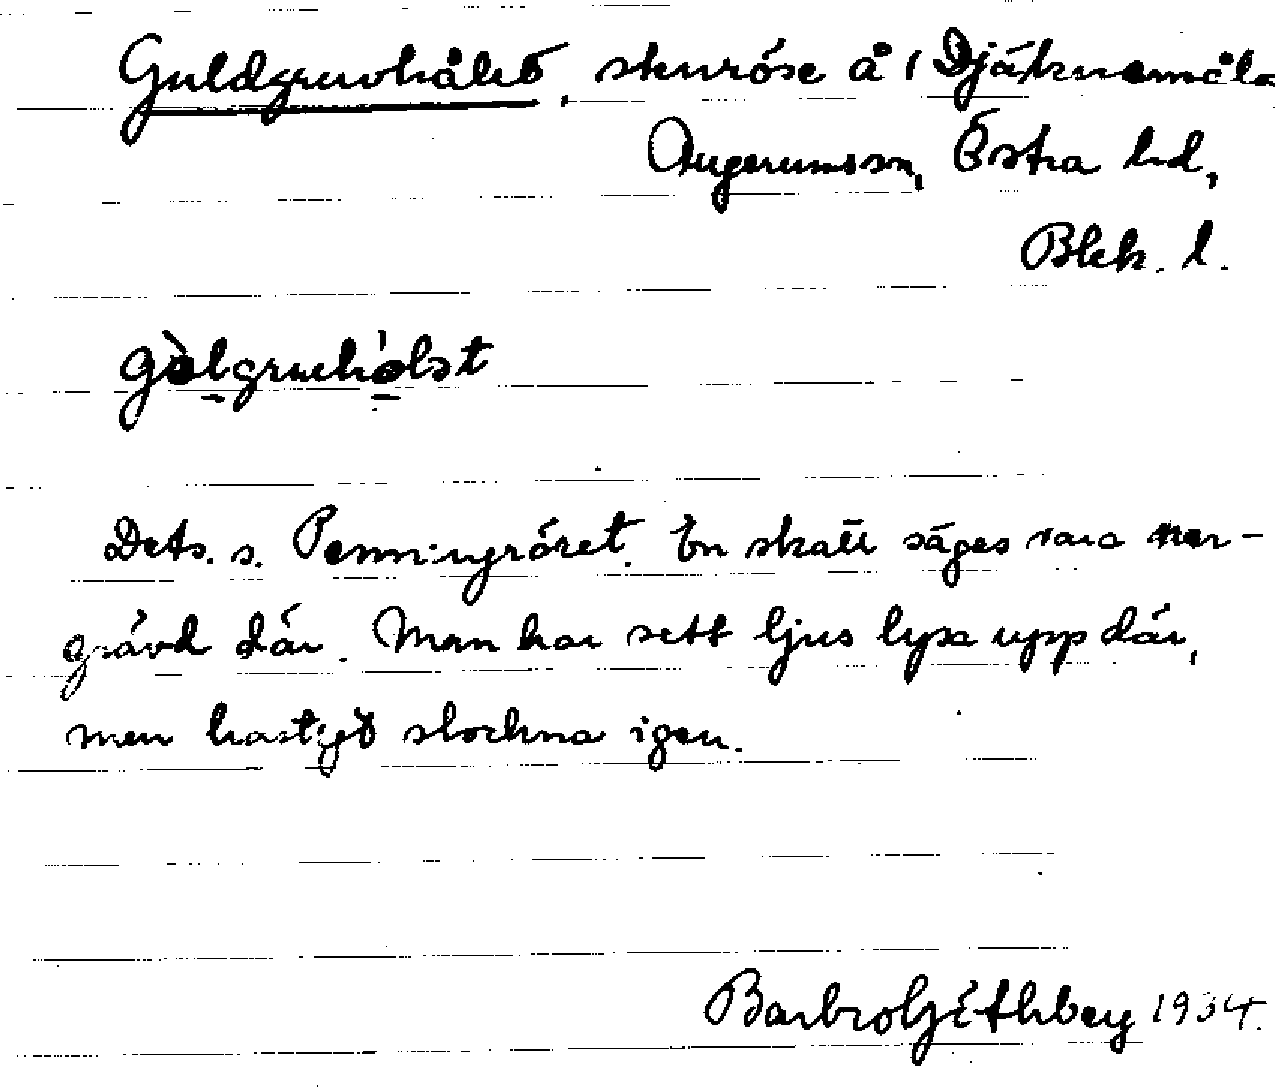 Guldgruvhålet, stenröse å 1 Djäknemåla
Augerums sn, Östra hd,
Blek. l.
Dets. s. Penningröret. En skatt säges vara ner-
grävd där. Man har sett ljus lysa upp där,
men hastigt slockna igen.
Barbro Göthberg 1934.